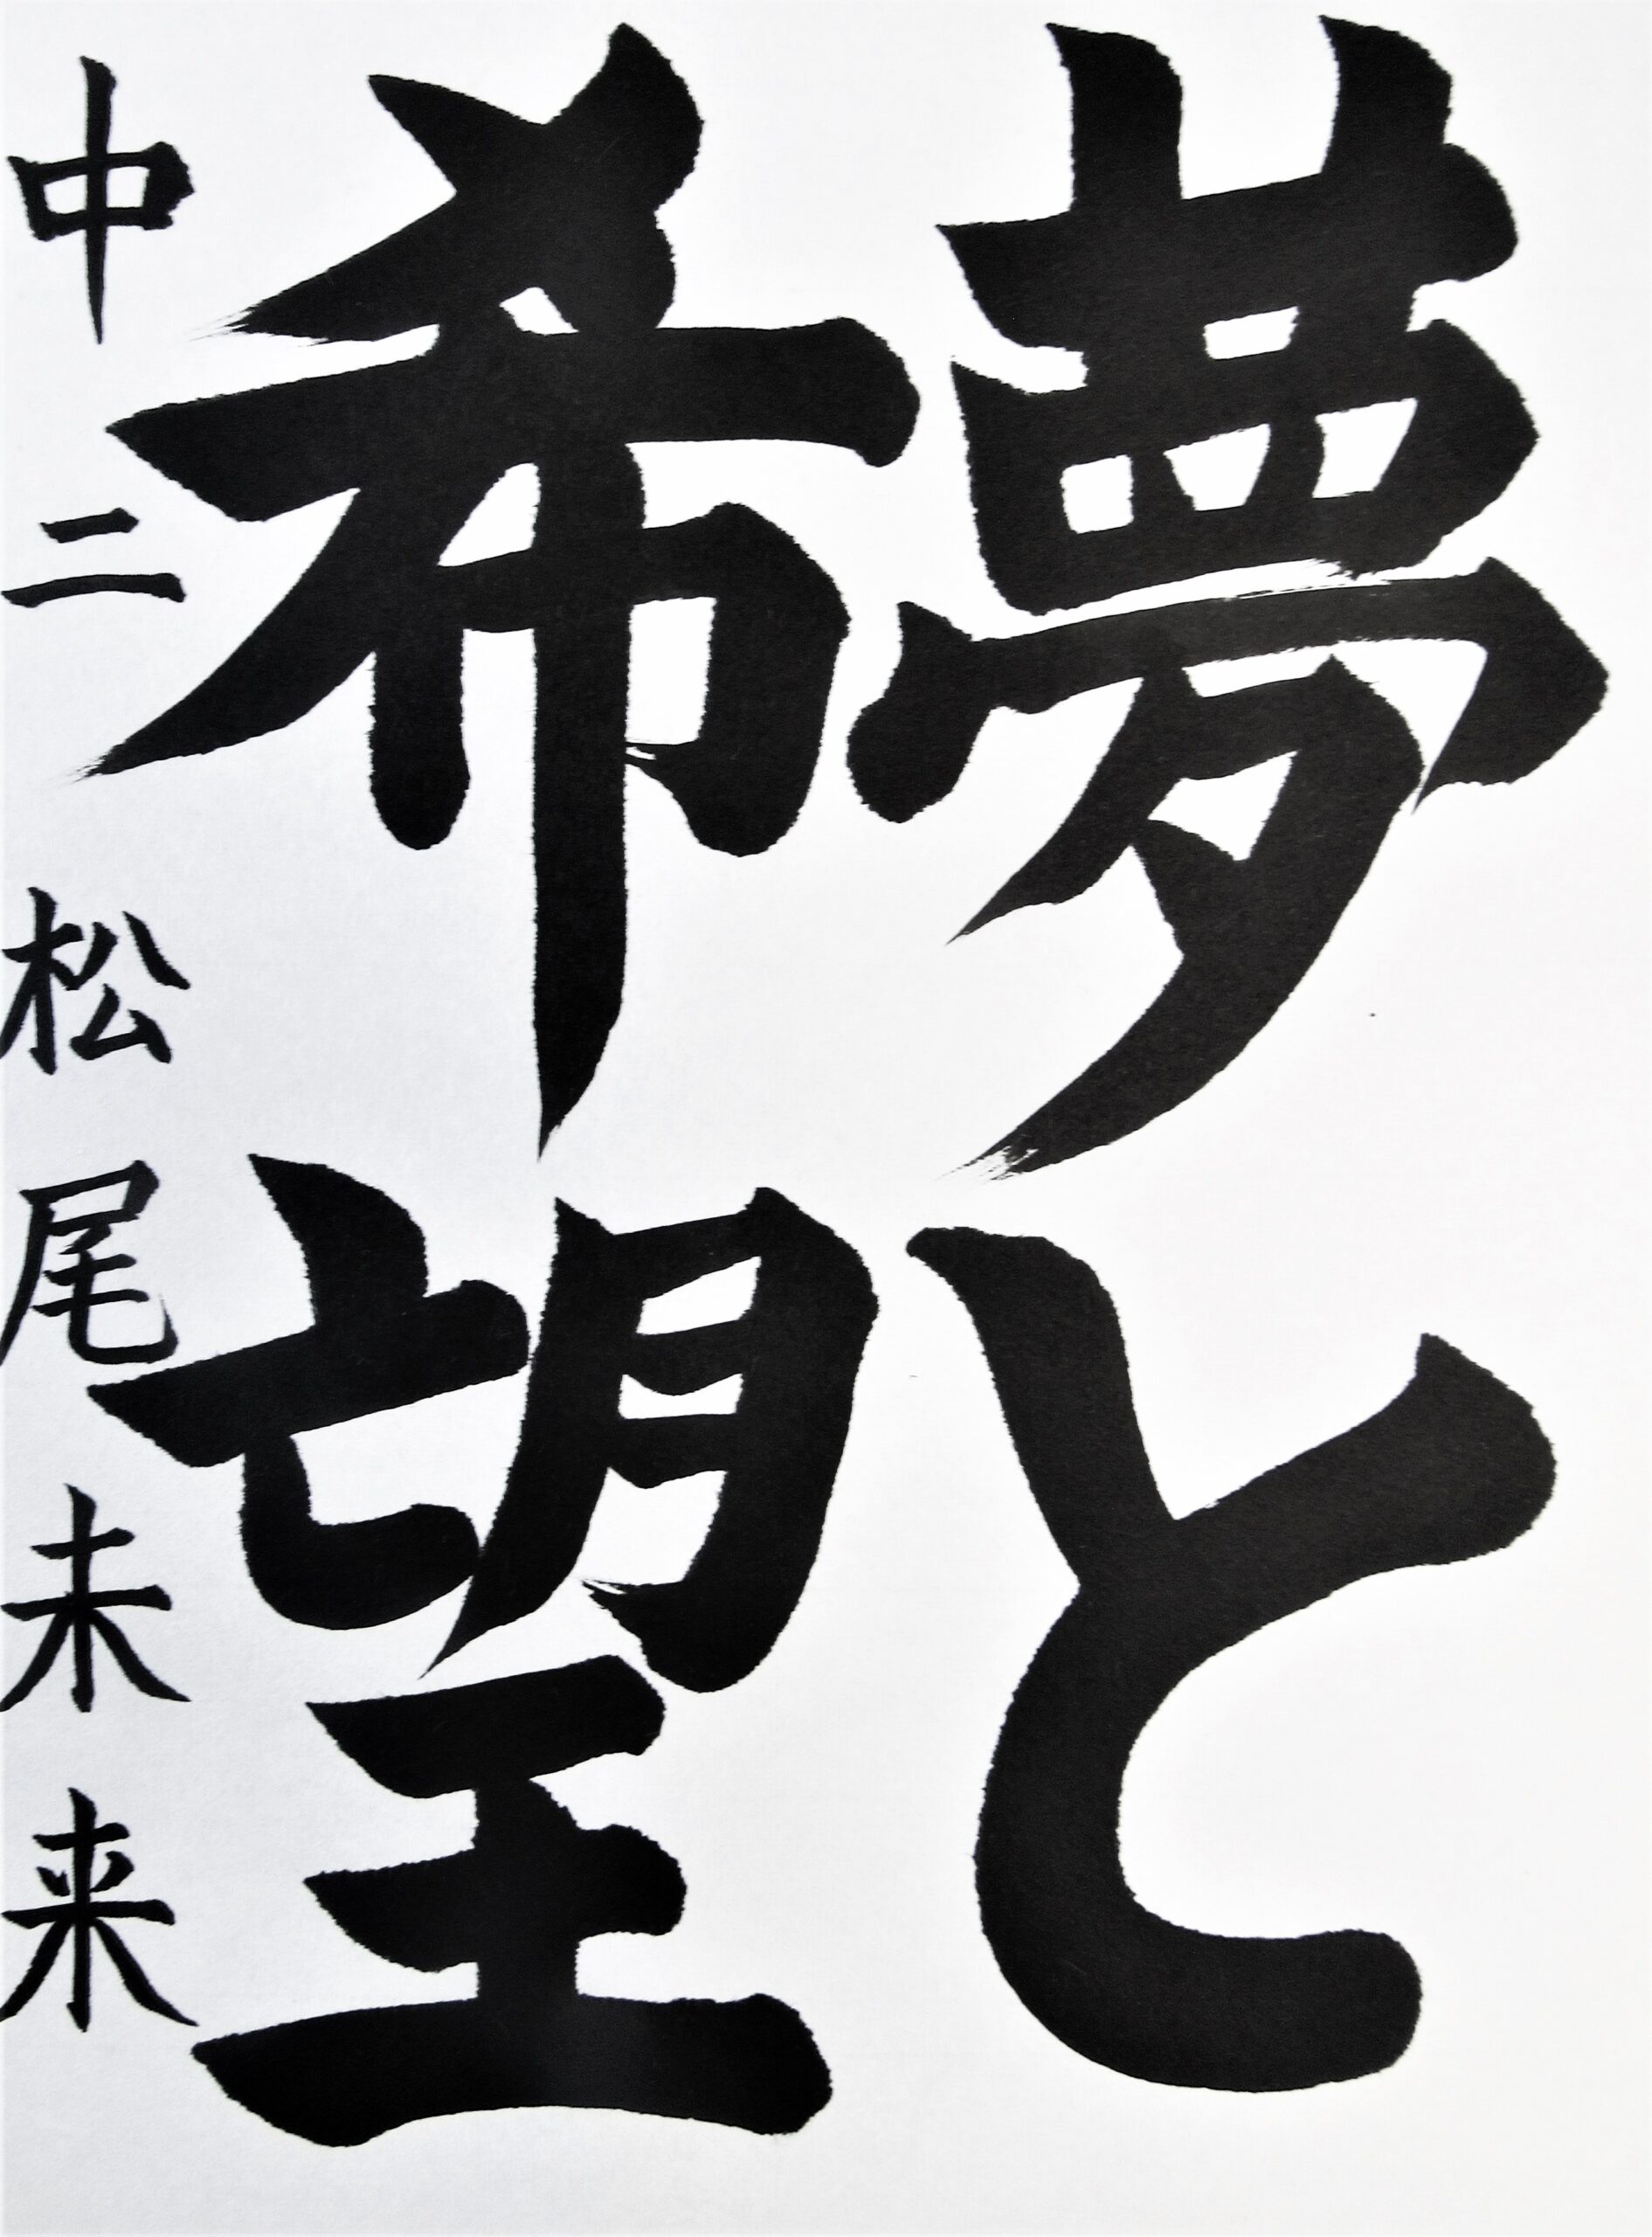 夢と
希望
中二 松尾未来